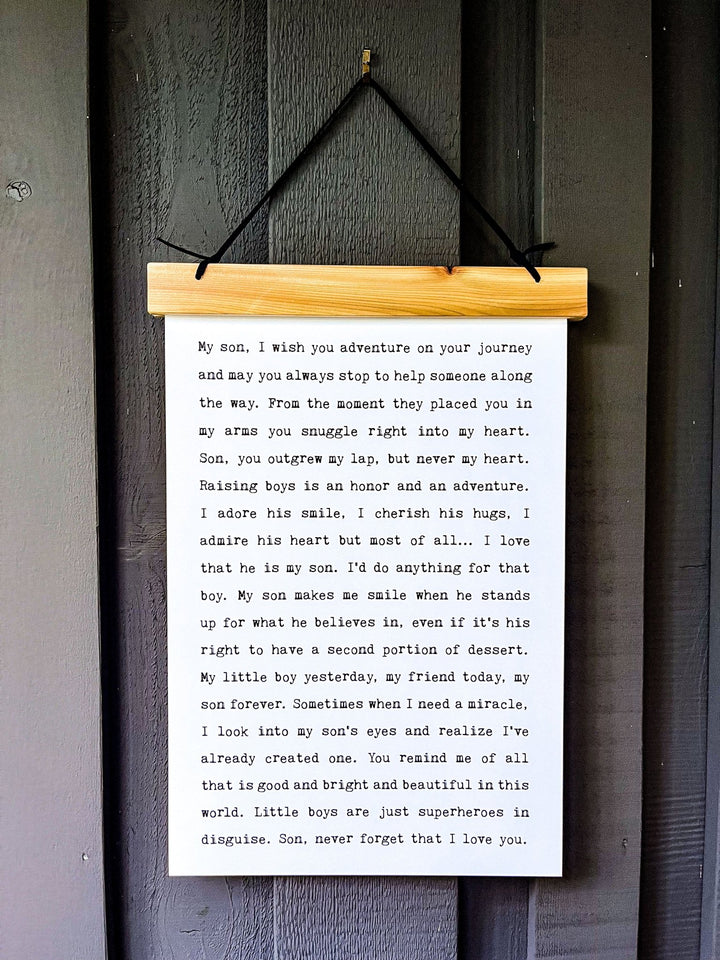 My son, I wish you adventure on your journey
and may you always stop to help someone along
the way. From the moment they placed you in
my arms you snuggle right into my heart.
Son, you outgrew my lap, but never my heart.
Raising boys is an honor and an adventure.
I adore his smile, I cherish his hugs, I
admire his heart but most of all... I love
that he is my son. I'd do anything for that
boy. My son makes me smile when he stands
up for what he believes in, even if it's his
right to have a second portion of dessert.
My little boy yesterday, my friend today, my
son forever. Sometimes when I need a miracle,
I look into my son's eyes and realize I've
already created one. You remind me of all
that is good and bright and beautiful in this
world. Little boys are just superheroes in
disguise. Son, never forget that I love you.